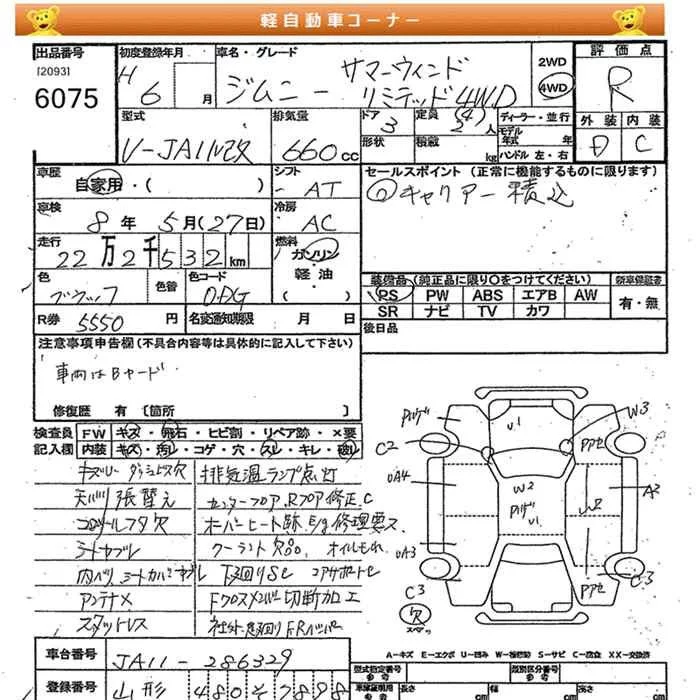 軽自動車コーナー
出品番号
[2093]
6075
初度登録年月
H 6 月
車名・グレード
ジムニー サマーウィンド
リミテッド4WD
2WD
4WD
評価点
R
外装 内装
D C
型式
V-JA11V改
排気量
660cc
ドア
3
定員 (4)
2人
ディーラー・並行
モデル年式 年
ハンドル 左・右
形状
積載
kg
車歴
自家用・( )
シフト
AT
セールスポイント (正常に機能するものに限ります)
キャリアー積込
車検
8年 5月(27日)
冷房
AC
走行
22万2千532km
燃料
ガソリン
軽油
( )
色
ブラック
色替
色コード
装備品 (純正品に限り○をつけてください)
新車保証書
PS PW ABS エアB AW
有・無
SR ナビ TV カワ
R券 5550円
名変通知期限 月 日
後日品
注意事項申告欄 (不具合内容等は具体的に記入して下さい)
車両はBヤード
修復歴 有 [箇所 ]
検査員 FW キズ・飛石・ヒビ割・リペア跡・×要
記入欄 内装 キズ・汚レ・コゲ・穴・スレ・キレ・破レ
排気温ランプ点灯
天バリ張替え
センターフロア、Rフロア修正、C
オーバーヒート跡、E/g修理要ス
シートヤブレ
クーラント欠品、オイルもれ
内ハリ シートカバー ヤブレ
下廻りSC コアサポートC
アンテナX
Fクロスメンバー切断加工
スタッドレス
社外 F.Rバンパー
C2
W3
U1
アアセ
UA4
W2
U2
A2
U1
UA3
C3
C3
欠
スペアタイヤ
A=キズ E=エクボ U=凹み W=補修跡 S=サビ C=腐食 XX=交換済
車台番号
JA11-286329
型式指定番号
類別区分番号
登録番号
山形 480 そ 7898
長さ cm
幅 cm
高さ cm